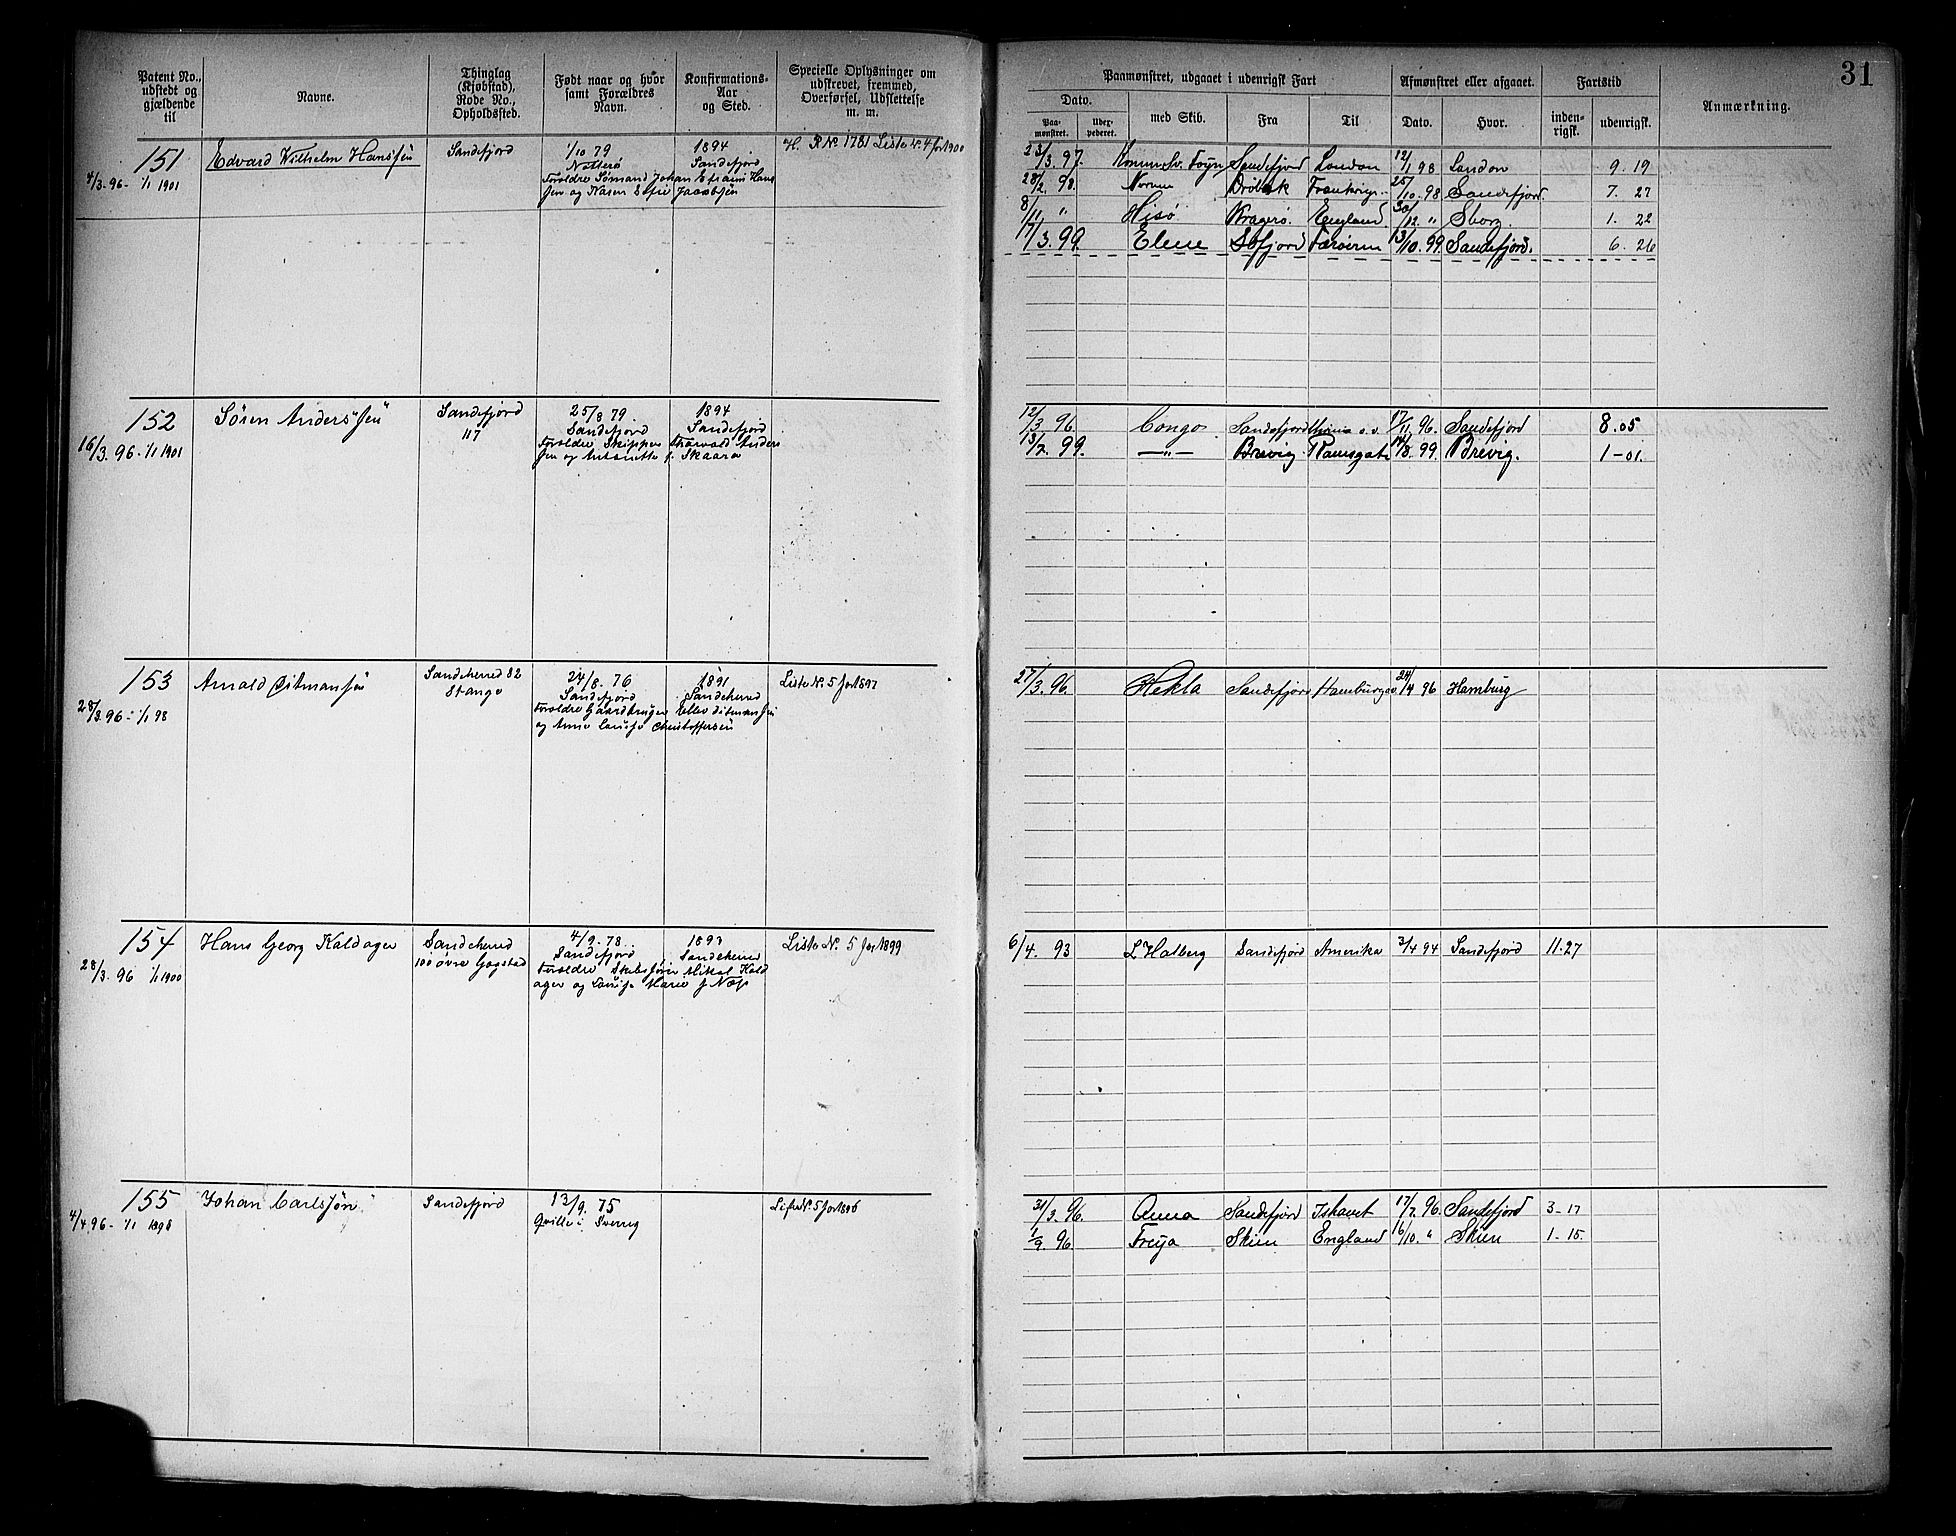 Patent No., udstedt og gjældende til
Navne.
Thinglag (Kjøbstad), Rode No., Opholdssted.
Født naar og hvor samt Forældres Navn.
Konfirmations-Aar og Sted.
Specielle Oplysninger om udskrevet, fremmed, Overførsel, Udslettelse m. m.
151
4/3 96 - 1/1 1901
Edvard Wilhelm Hanssen
Sandefjord
1/10 79
Nøtterø
Forældre Sømand Johan Efraim Hans
sen og Karen Jacobsen
1894
Sandefjord
H. R No. 1781 Liste No. 4 for 1900
152
16/3. 96 - 1/1 1901
Søren Anderssen
Sandefjord
117
25/8 79
Sandefjord
Forældre Skipper Thorvald Anders
sen og f. Skaara
1894
Sandefjord
153
28/3. 96 - 1/1 98
Arnold Ditmanssen
Sandeherred 82
Stange
24/8. 76
Sandefjord
Forældre Gaardbruger Ditmanssen
og Anne Christoffersen
1891
Sandeherred
Liste No. 5 for 1897
154
28/3. 96 1/1 1900
Hans Georg Kaldager
Sandeherred
100 øvre Gogstad
4/9. 78
Sandefjord
Forældre Skibsfører Mikal Kald
ager og Marie f Næss
1893
Sandeherred
Liste No. 5 for 1899
155
4/4 96 - 1/1 1898
Johan Carlsson
Sandefjord
13/9. 75
i Sverig
Liste No. 5 for 1896
31
Paamønstret, udgaaet i udenrigsk Fart
Afmønstret eller afgaaet.
Fartstid
Anmærkning.
Dato.
Paa-mønstret.
Udex-pederet.
med Skib.
Fra
Til
Dato.
Hvor.
inden-rigsk.
udenrigsk.
23/3. 97. Sv. Foyn Sandefjord London 12/1 98 London 9. 19
28/2. 98. Norma Drøbak Frankrig 25/10. 98 Sandefjord. 7. 27
8/11 " Hisø Kragerø. England 30/12. " Sborg 1. 22
17/3. 99. Elene Sbfjord Færøerne 13/10. 99. Sandefjord. 6. 26
12/3. 96 Congo Sandefjord o.v. 17/11. 96. Sandefjord 8. 05
13/2. 99. — " — Brevig Ramsgate 14/3. 99. Brevig. 1 - 01.
27/3. 96 Hekla Sandefjord Hamburg 24/4 96 Hamburg
6/4. 93 L Holberg Sandefjord Amerika 3/4 94 Sandefjord 11. 27
31/3. 96. Anna Sandefjord Ishavet 17/7. 96. Sandefjord 3 - 17
1/9 96 Freya Skien England 16/10. " Skien 1 - 15.